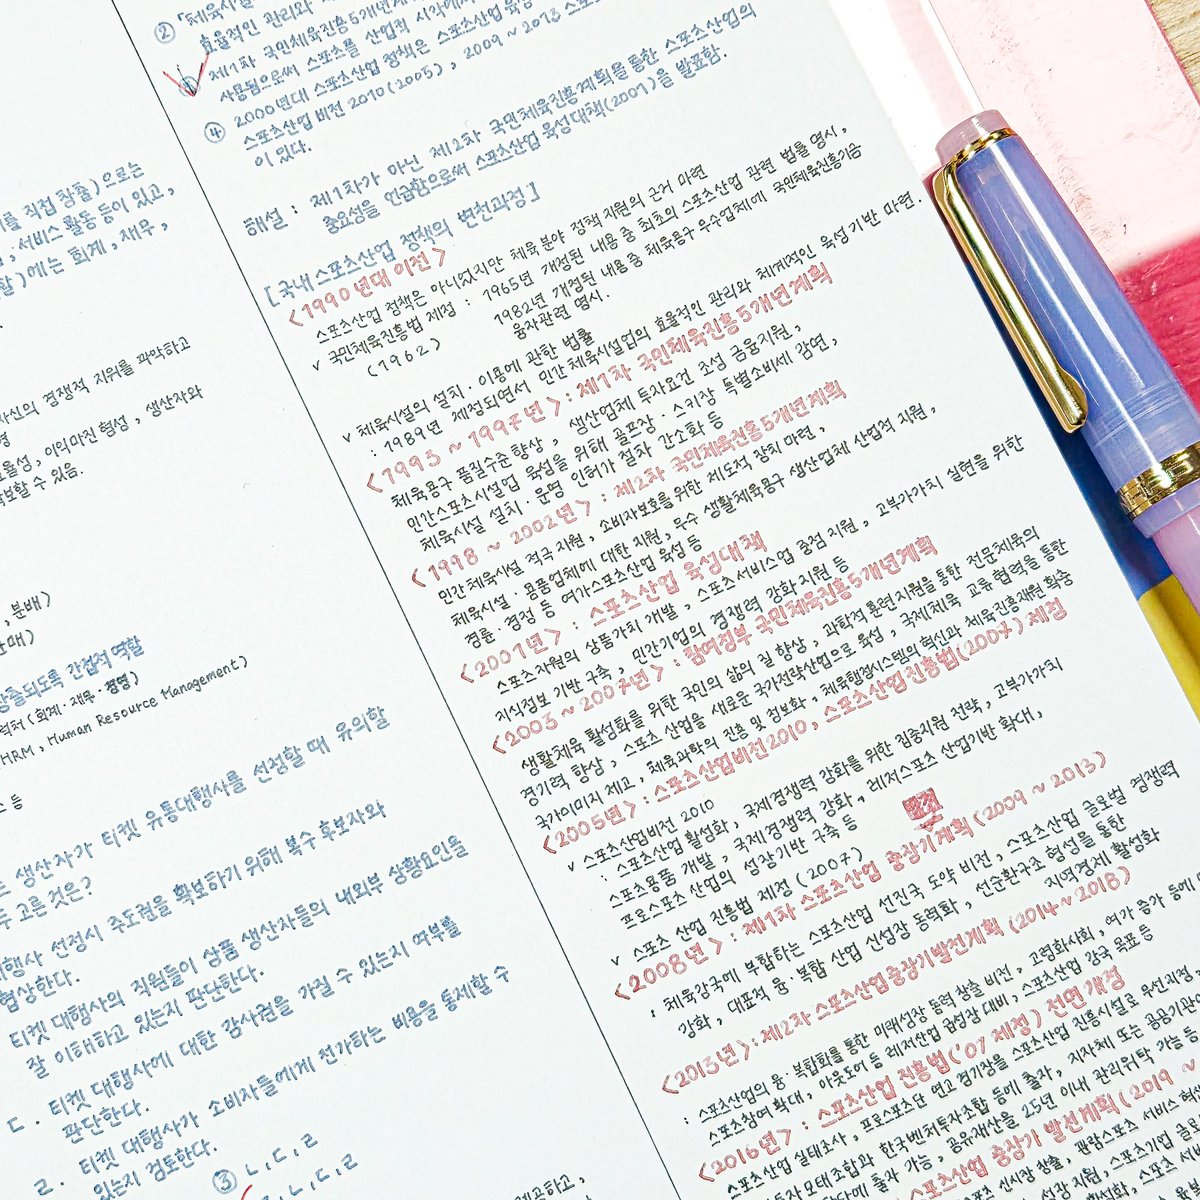 를 직접 창출)으로는
, 서비스 활동 등이 있고,
할)에는 회계, 재무,
자신의 경쟁적 지위를 파악하고
율성, 이익마진 형성, 생산자와
보할 수 있음.
, 분배)
매)
창출되도록 간접적 역할
력처 (회계·재무·경영)
HRM, Human Resource Management)
스 등
는 생산자가 티켓 유통대행사를 선정할 때 유의할
두 고른 것은?
대행사 선정시 주도권을 확보하기 위해 복수 후보자와
협상한다.
티켓 대행사의 직원들이 상품 생산자들의 내외부 상황요인을
잘 이해하고 있는지 판단한다.
ㄷ. 티켓 대행사에 대한 감사권을 가질 수 있는지 여부를
판단한다.
ㄹ. 티켓 대행사가 소비자들에게 전가하는 비용을 통제할 수
있는지 검토한다.
③ ㄴ, ㄷ, ㄹ
ㄴ, ㄷ, ㄹ
② 「체육시설
효율적인 관리와
제1차 국민체육진흥5개년계획
사용됨으로써 스포츠를 산업적 시각에서
④ 2000년대 스포츠산업 정책은 스포츠산업 육성
스포츠산업 비전 2010(2005), 2009 ~ 2013 스포츠산업의
이 있다.
해설 : 제1차가 아닌 제2차 국민체육진흥계획을 통한 스포츠산업의
중요성을 언급함으로써 스포츠산업 육성대책(2001)을 발표함.
[국내 스포츠산업 정책의 변천과정]
<1990년대 이전>
스포츠산업 정책은 아니었지만 체육분야 정책 지원의 근거 마련
v 국민체육진흥법 제정 : 1965년 개정된 내용 중 최초의 스포츠산업 관련 법률 명시,
(1962) 1982년 개정된 내용 중 체육용구 우수업체에 국민체육진흥기금
융자관련 명시.
v 체육시설의 설치·이용에 관한 법률
: 1989년 제정되면서 민간체육시설업의 효율적인 관리와 체계적인 육성기반 마련.
<1993 ~ 1997년> : 제1차 국민체육진흥5개년계획
체육용구 품질수준향상, 생산업체 투자요건 조성 금융지원,
민간스포츠시설업 육성을 위해 골프장·스키장 특별소비세 감면,
체육시설 설치·운영 인허가 절차 간소화 등
<1998 ~ 2002년> : 제2차 국민체육진흥5개년계획
민간체육시설 적극지원, 소비자보호를 위한 제도적 장치 마련,
체육시설·용품업체에 대한 지원, 우수 생활체육용구 생산업체 산업적 지원,
경륜·경정 등 여가스포츠산업 육성 등
<2001년> : 스포츠산업 육성대책
스포츠자원의 상품가치 개발, 스포츠서비스업 중점지원, 고부가가치 실현을 위한
지식정보 기반 구축, 민간기업의 경쟁력 강화 지원 등
<2003 ~ 2007년> : 참여정부 국민체육진흥5개년계획
생활체육 활성화를 위한 국민의 삶의 질 향상, 과학적 훈련지원을 통한 전문체육의
경기력 향상, 스포츠 산업을 새로운 국가전략산업으로 육성, 국제체육 교류 협력을 통한
국가이미지 제고, 체육과학의 진흥 및 정보화, 체육행정시스템의 혁신과 체육진흥재원 확충
<2005년> : 스포츠산업비전2010, 스포츠산업진흥법(2007) 제정
v 스포츠산업비전 2010
: 스포츠산업 활성화, 국제경쟁력 강화를 위한 집중지원 전략, 고부가가치
스포츠용품 개발, 국제경쟁력 강화, 레저스포츠 산업기반 확대,
프로스포츠 산업의 성장기반 구축 등
v 스포츠 산업 진흥법 제정 (2007)
<2008년> : 제1차 스포츠산업 중장기계획 (2009 ~ 2013)
: 체육강국에 부합하는 스포츠산업 선진국 도약 비전, 스포츠산업 글로벌 경쟁력
강화, 대표적 융·복합 산업 신성장 동력화, 선순환구조 형성을 통한
지역경제 활성화
<2013년> : 제2차 스포츠산업중장기발전계획 (2014 ~ 2018)
: 스포츠산업의 융·복합화를 통한 미래성장 동력 창출 비전, 고령화사회, 여가 증가 등에
스포츠참여 확대, 아웃도어 등 레저산업 급성장 대비, 스포츠산업 강국 목표 등
<2016년> : 스포츠산업 진흥법 ('07 제정) 전면 개정
스포츠산업 실태조사, 프로스포츠단 연고 경기장을 스포츠산업 진흥시설로 우선지정
투자모태조합과 한국벤처투자조합 등에 출자, 지자체 또는 공공기관
단에 출자 가능, 공유재산을 25년 이내 관리위탁 가능 등
스포츠산업 중장기 발전계획 (2019 ~